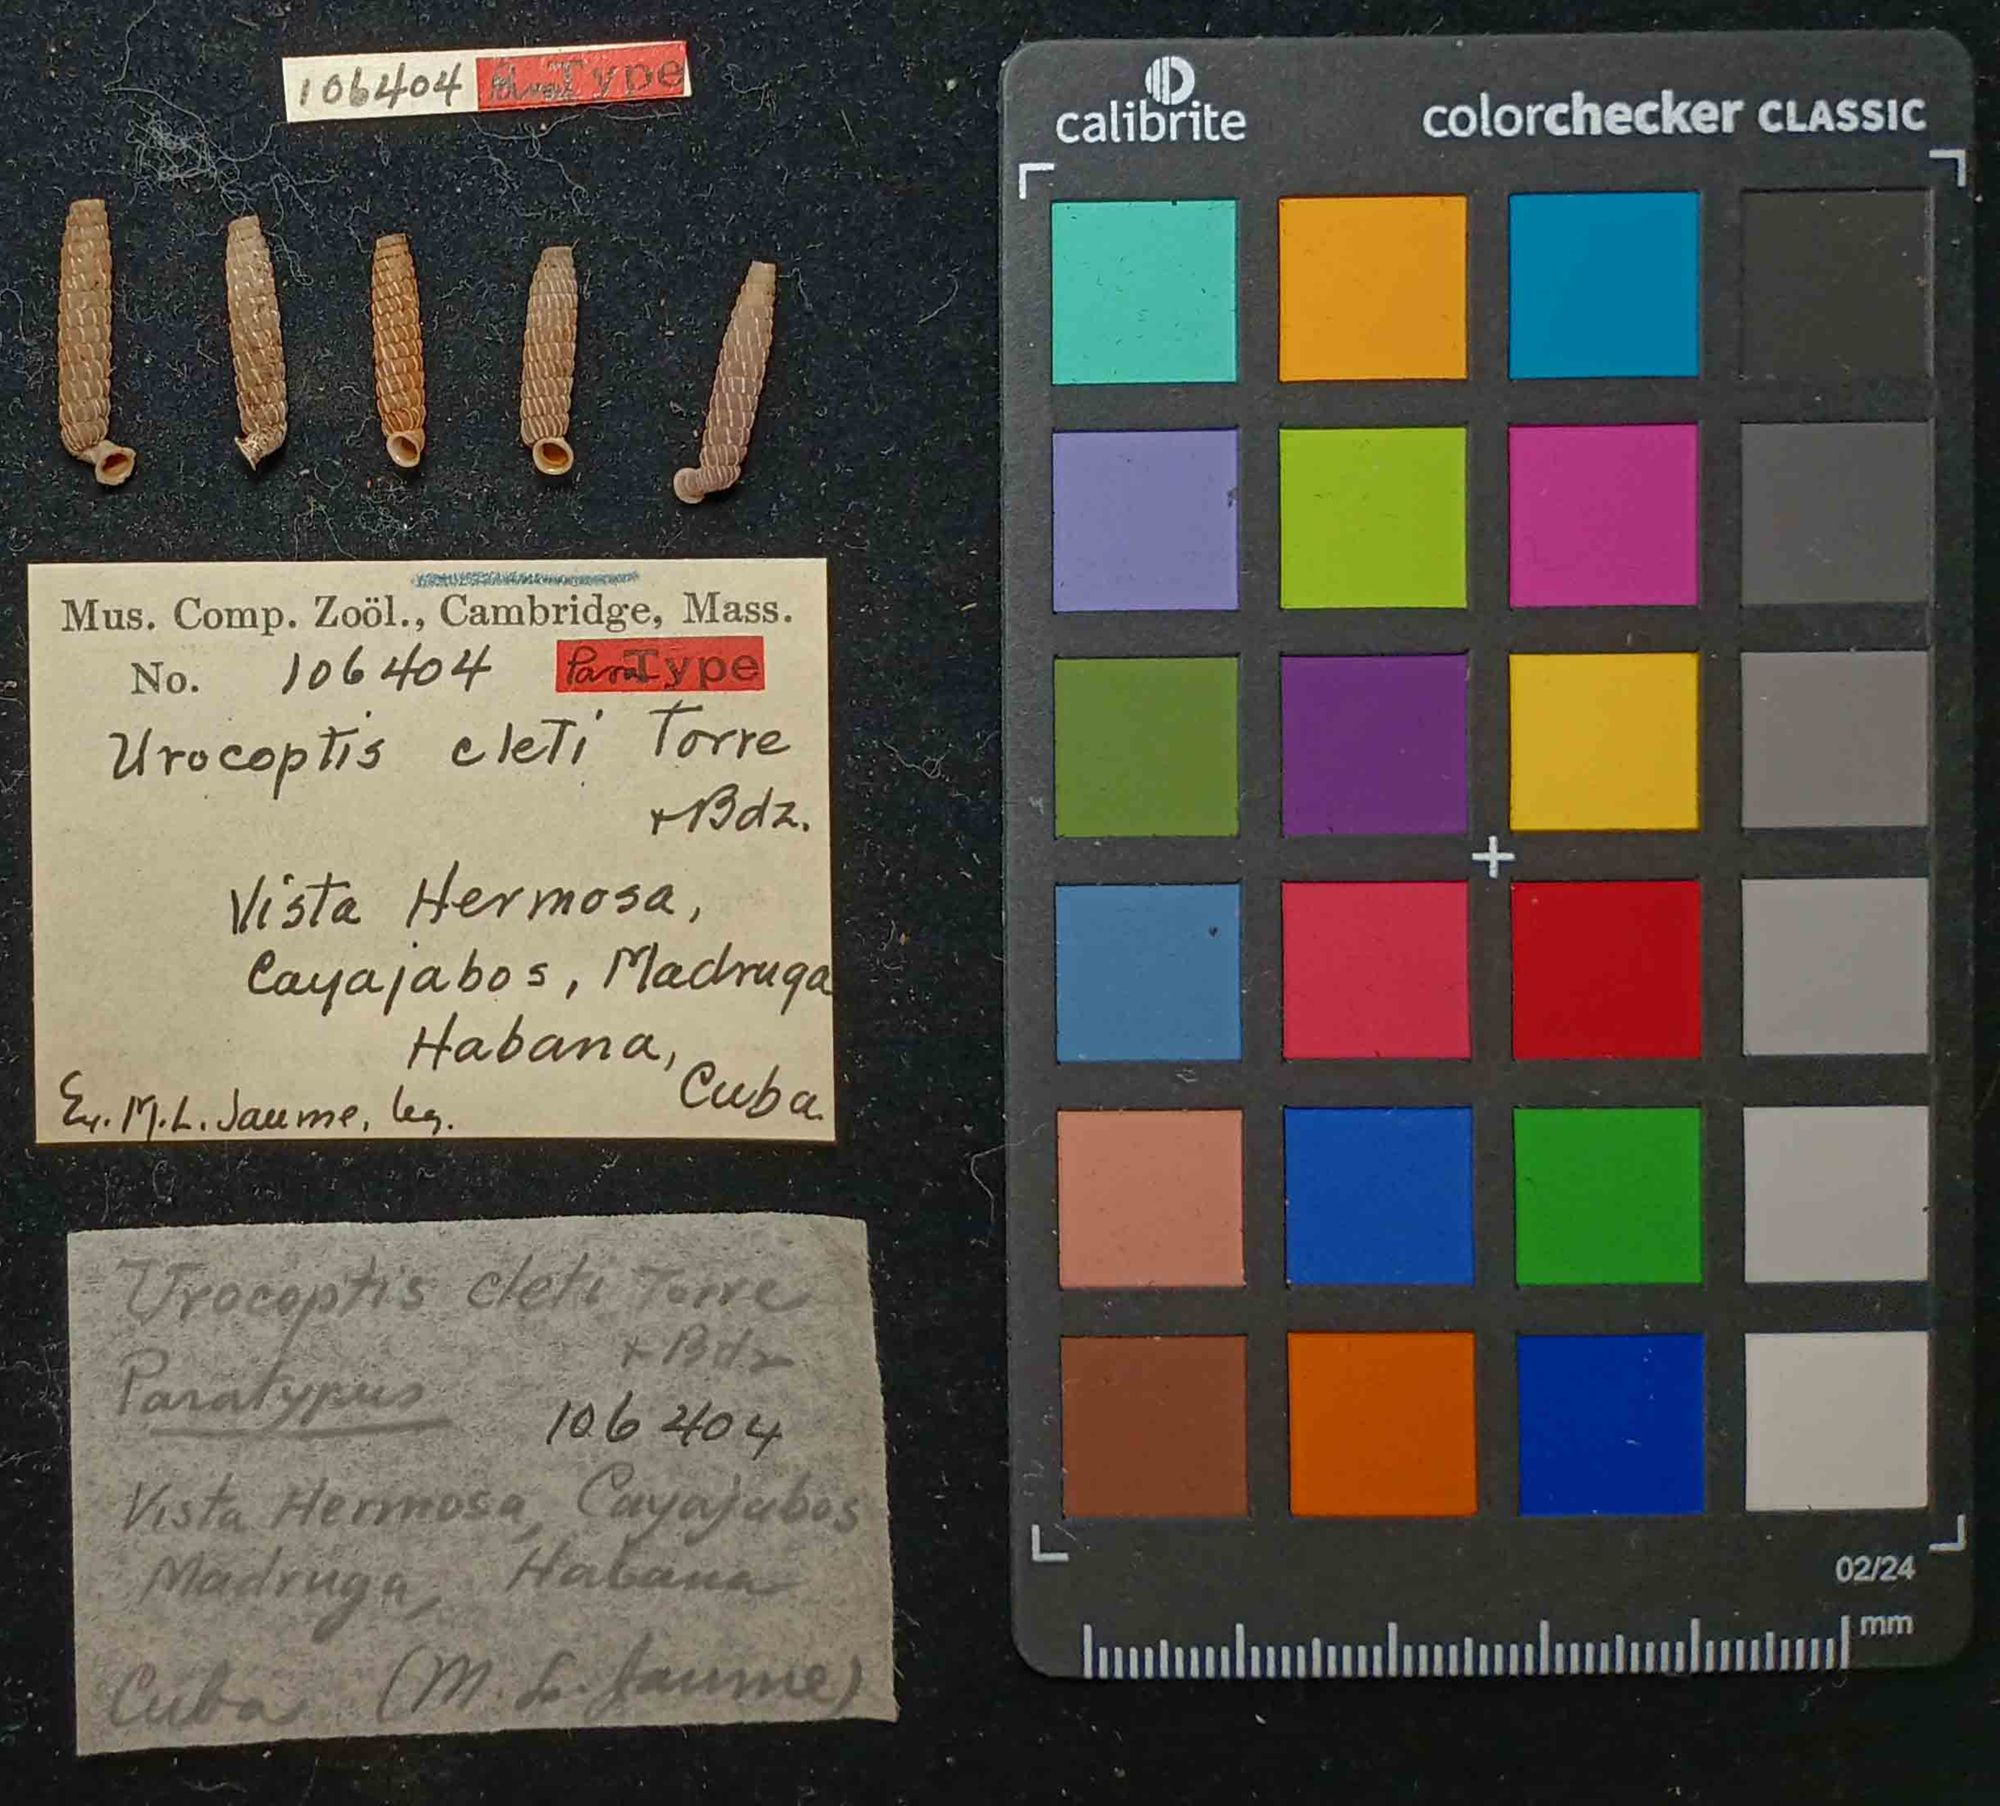 106404 ParaType
calibrite
colorchecker CLASSIC
Mus. Comp. Zoöl., Cambridge, Mass.
No. 106404 ParaType
Urocoptis cleti Torre
+ Bdz.
Vista Hermosa,
Cayajabos, Madruga
Habana,
Cuba.
Ex. M.L. Jaume, leg.
Urocoptis cleti Torre
+ Bdz
Paratypus
106404
Vista Hermosa, Cayajabos
Madruga, Habana
Cuba (M. L. Jaume)
02/24
mm